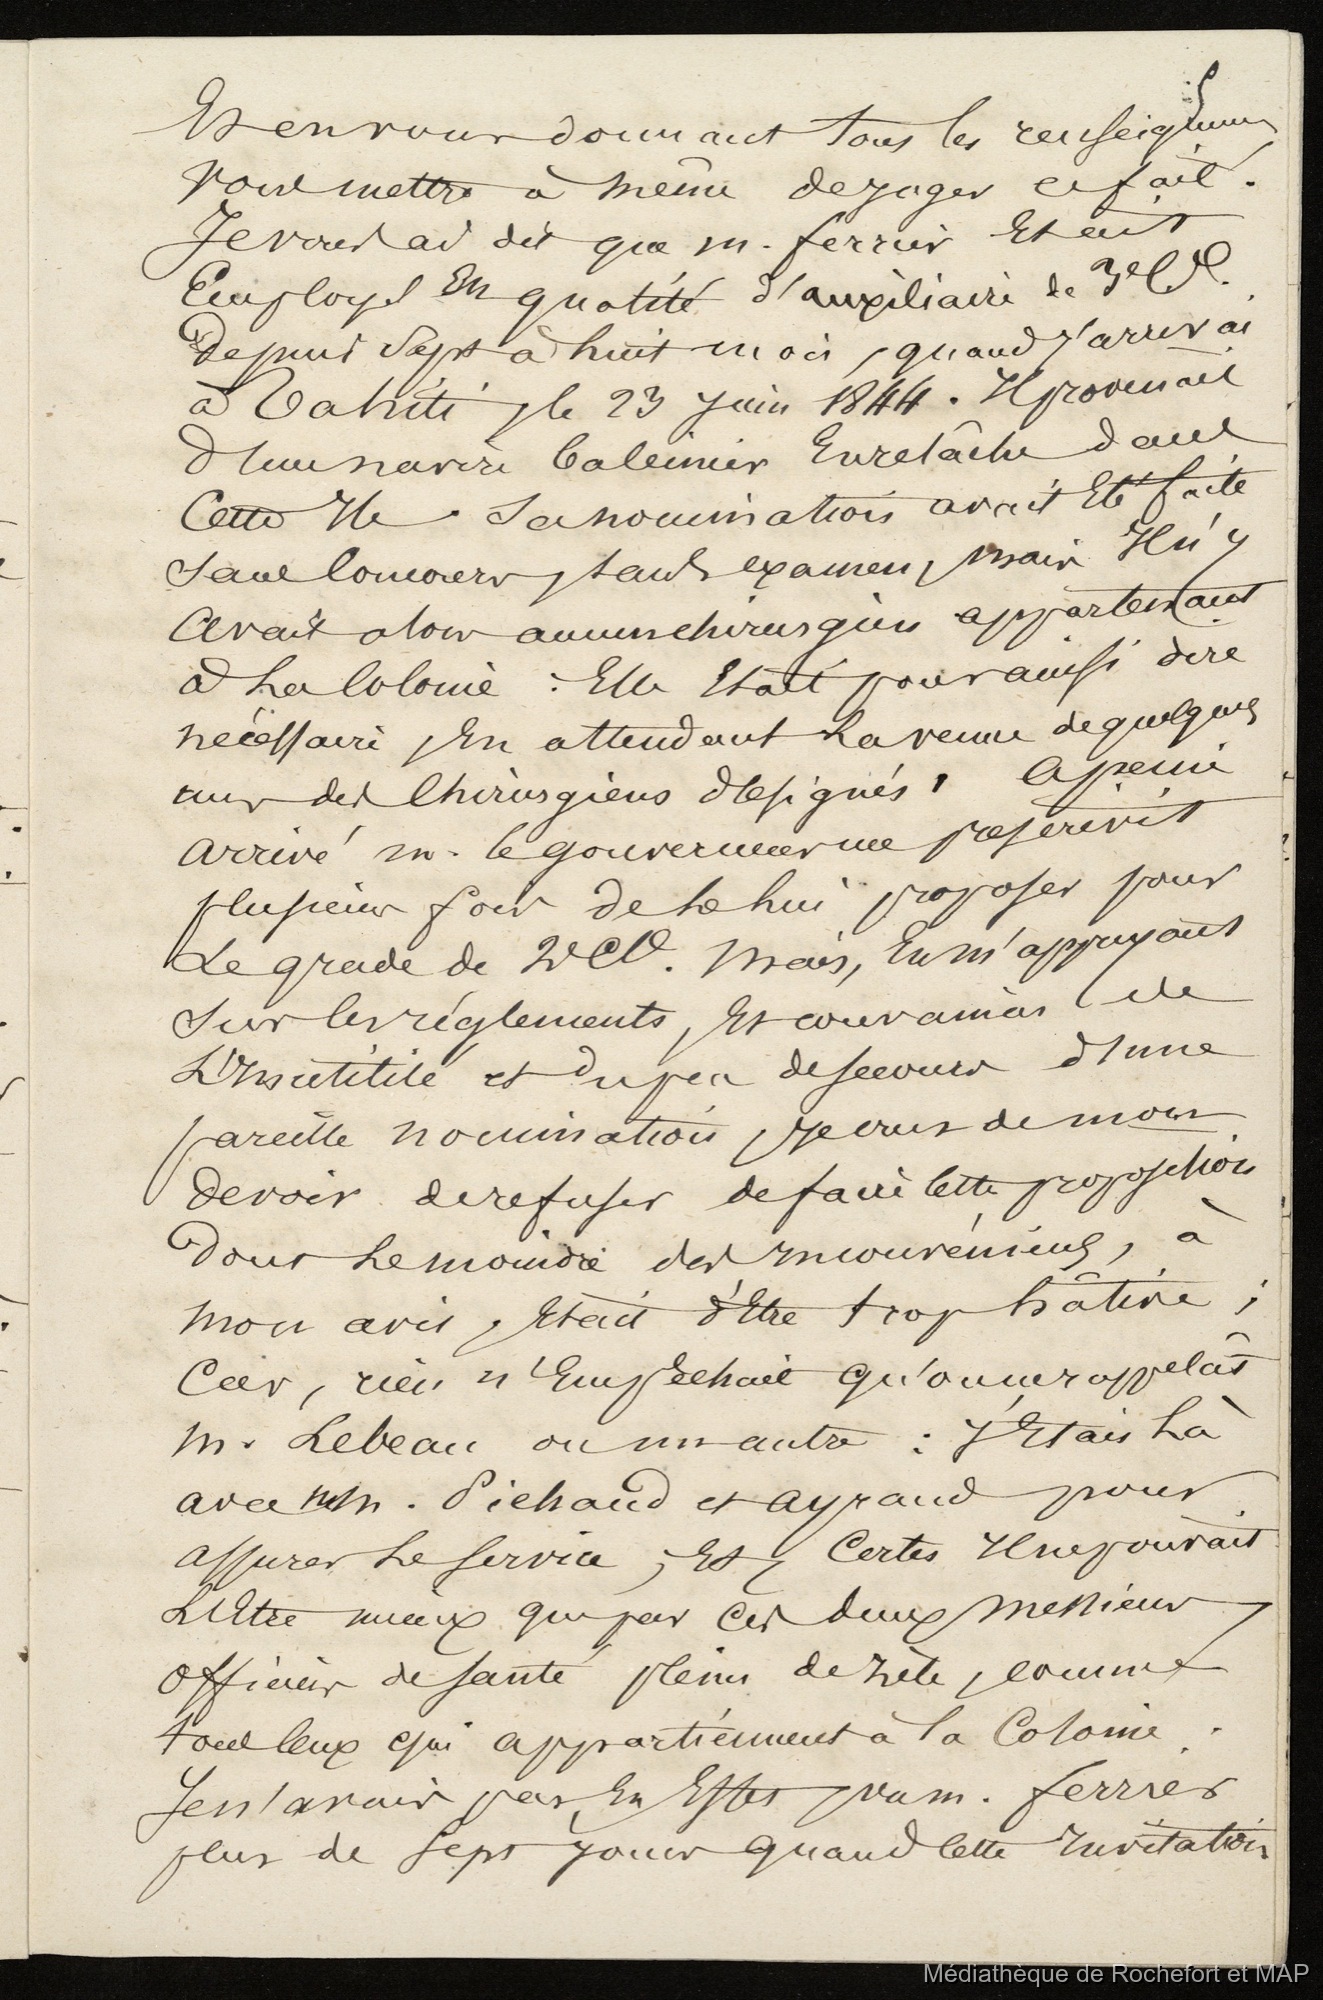 5
Et en vous donnant tous les renseignemens
vous mettre à même de juger ce fait.
Je vous ai dit que m. ferrier Etait
Employé En qualité d'auxiliaire de 3e Cl.
Depuis Sept à huit mois, quand j'arrivai
à Tahiti, le 23 Juin 1844. Il provenait
d'un navire baleinier En relâche dans
Cette Ile. Sa nomination avait Eté faite
Sans Concours, sans examen, mais Il n'y
avait alors aucun chirurgien appartenant
à La Colonie : Elle Etait pour ainsi dire
nécessaire, En attendant La venue de quelques
uns des Chirurgiens désignés, a peine
arrivé m. le gouverneur me prescrivit
plusieurs fois de le lui proposer pour
Le grade de 2e Cl. Mais, En m'appuyant
Sur les réglements, Et convaincu de
L'Inutilité et du peu de secours d'une
pareille nomination, je crus de mon
devoir de refuser de faire Cette proposition
Dont Le moindre des Inconvéniens, à
mon avis, Etait d'Etre trop hâtive ;
Car, rien n'Empêchait qu'on me rappelât
m. Lebeau ou un autre : J'Etais Là
avec MM. Pichaud et ayraud pour
assurer Le Service, Et, Certes Il ne pouvait
L'Etre mieux que par Ces deux messieurs,
officiers de santé pleins de zèle, comme
tous Ceux qui appartiennent à la Colonie.
Je n'avais pas, En Effet, vu m. ferrier
plus de Sept jours quand Cette Invitation
Médiathèque de Rochefort et MAP